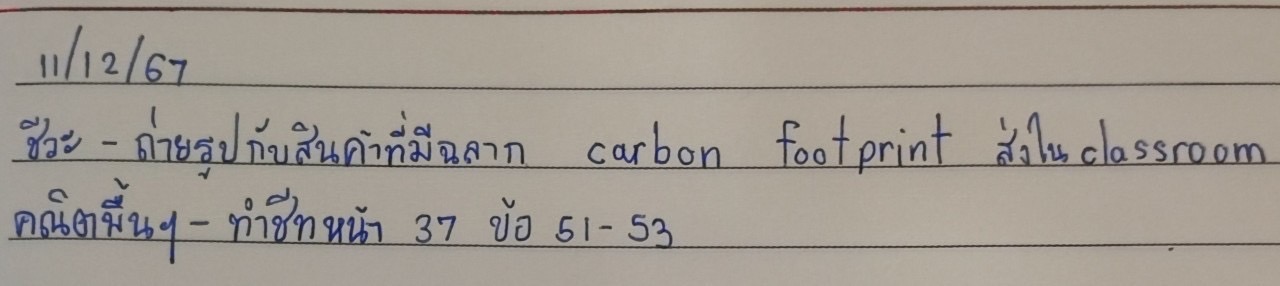 11/12/67
ชีวะ - ถ่ายรูปกับสินค้าที่มีฉลาก carbon footprint ส่งใน classroom
คณิตพื้นฯ - ทำชีทหน้า 37 ข้อ 51-53